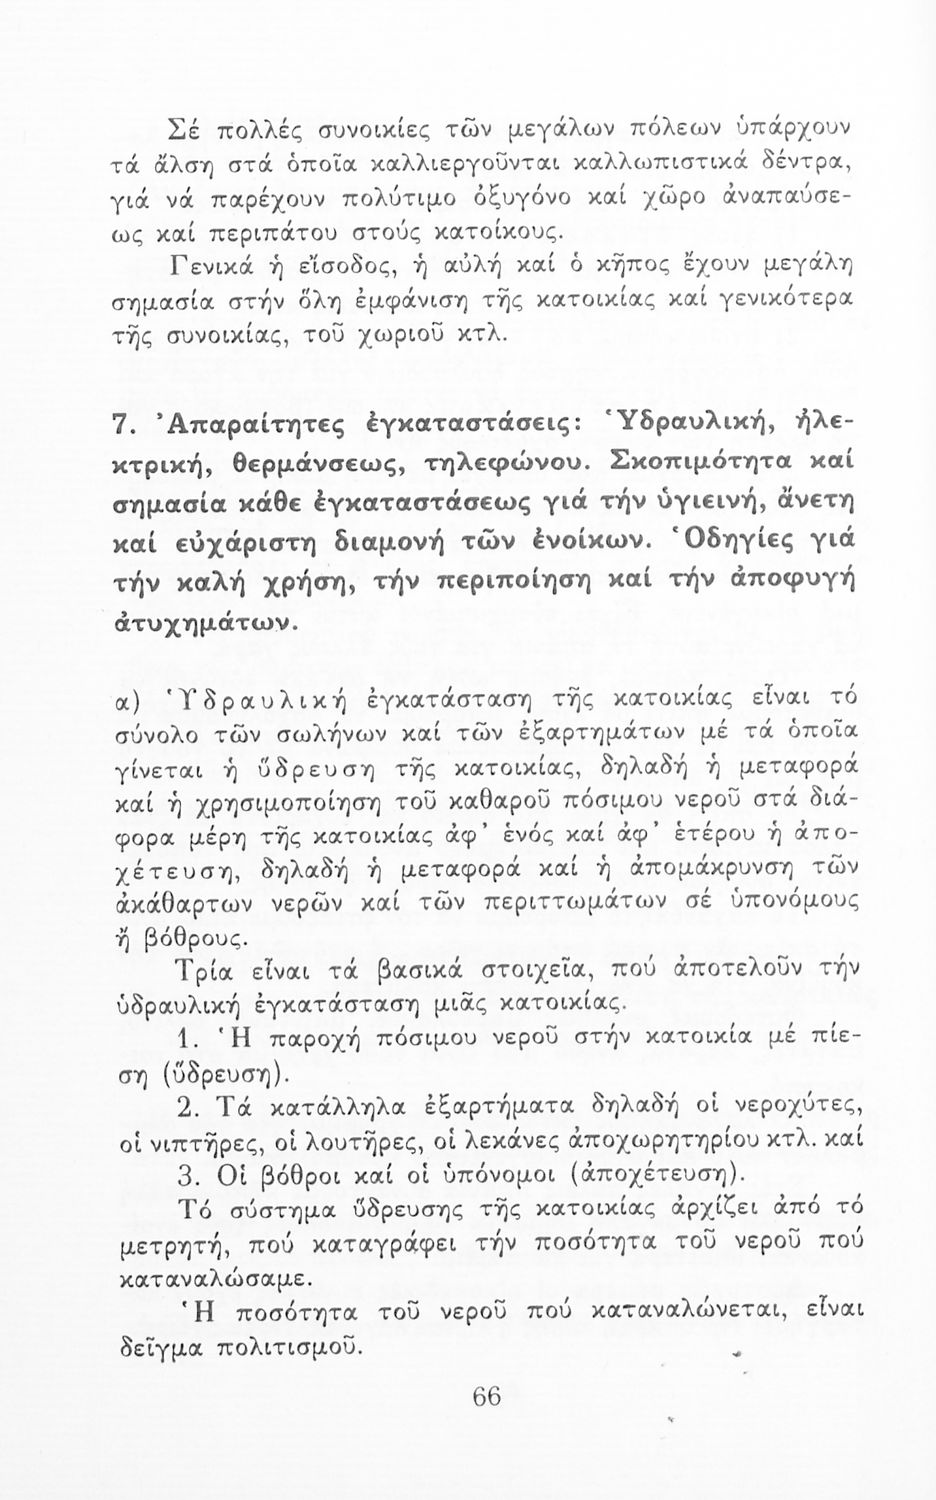 Σέ πολλές συνοικίες τῶν μεγάλων πόλεων ὑπάρχουν
τά ἄλση στά ὁποῖα καλλιεργοῦνται καλλωπιστικά δέντρα,
γιά νά παρέχουν πολύτιμο ὀξυγόνο καί χῶρο ἀναπαύσε-
ως καί περιπάτου στούς κατοίκους.
Γενικά ἡ εἴσοδος, ἡ αὐλή καί ὁ κῆπος ἔχουν μεγάλη
σημασία στήν ὅλη ἐμφάνιση τῆς κατοικίας καί γενικότερα
τῆς συνοικίας, τοῦ χωριοῦ κτλ.
7. Ἀπαραίτητες ἐγκαταστάσεις: Ὑδραυλική, ἠλε-
κτρική, θερμάνσεως, τηλεφώνου. Σκοπιμότητα καί
σημασία κάθε ἐγκαταστάσεως γιά τήν ὑγιεινή, ἄνετη
καί εὐχάριστη διαμονή τῶν ἐνοίκων. Ὁδηγίες γιά
τήν καλή χρήση, τήν περιποίηση καί τήν ἀποφυγή
ἀτυχημάτων.
α) Ὑδραυλική ἐγκατάσταση τῆς κατοικίας εἶναι τό
σύνολο τῶν σωλήνων καί τῶν ἐξαρτημάτων μέ τά ὁποῖα
γίνεται ἡ ὕδρευση τῆς κατοικίας, δηλαδή ἡ μεταφορά
καί ἡ χρησιμοποίηση τοῦ καθαροῦ πόσιμου νεροῦ στά διά-
φορα μέρη τῆς κατοικίας ἀφ' ἑνός καί ἀφ' ἑτέρου ἡ ἀπο-
χέτευση, δηλαδή ἡ μεταφορά καί ἡ ἀπομάκρυνση τῶν
ἀκάθαρτων νερῶν καί τῶν περιττωμάτων σέ ὑπονόμους
ἤ βόθρους.
Τρία εἶναι τά βασικά στοιχεῖα, πού ἀποτελοῦν τήν
ὑδραυλική ἐγκατάσταση μιᾶς κατοικίας.
1. Ἡ παροχή πόσιμου νεροῦ στήν κατοικία μέ πίε-
ση (ὕδρευση).
2. Τά κατάλληλα ἐξαρτήματα δηλαδή οἱ νεροχύτες,
οἱ νιπτῆρες, οἱ λουτῆρες, οἱ λεκάνες ἀποχωρητηρίου κτλ. καί
3. Οἱ βόθροι καί οἱ ὑπόνομοι (ἀποχέτευση).
Τό σύστημα ὕδρευσης τῆς κατοικίας ἀρχίζει ἀπό τό
μετρητή, πού καταγράφει τήν ποσότητα τοῦ νεροῦ πού
καταναλώσαμε.
Ἡ ποσότητα τοῦ νεροῦ πού καταναλώνεται, εἶναι
δεῖγμα πολιτισμοῦ.
66